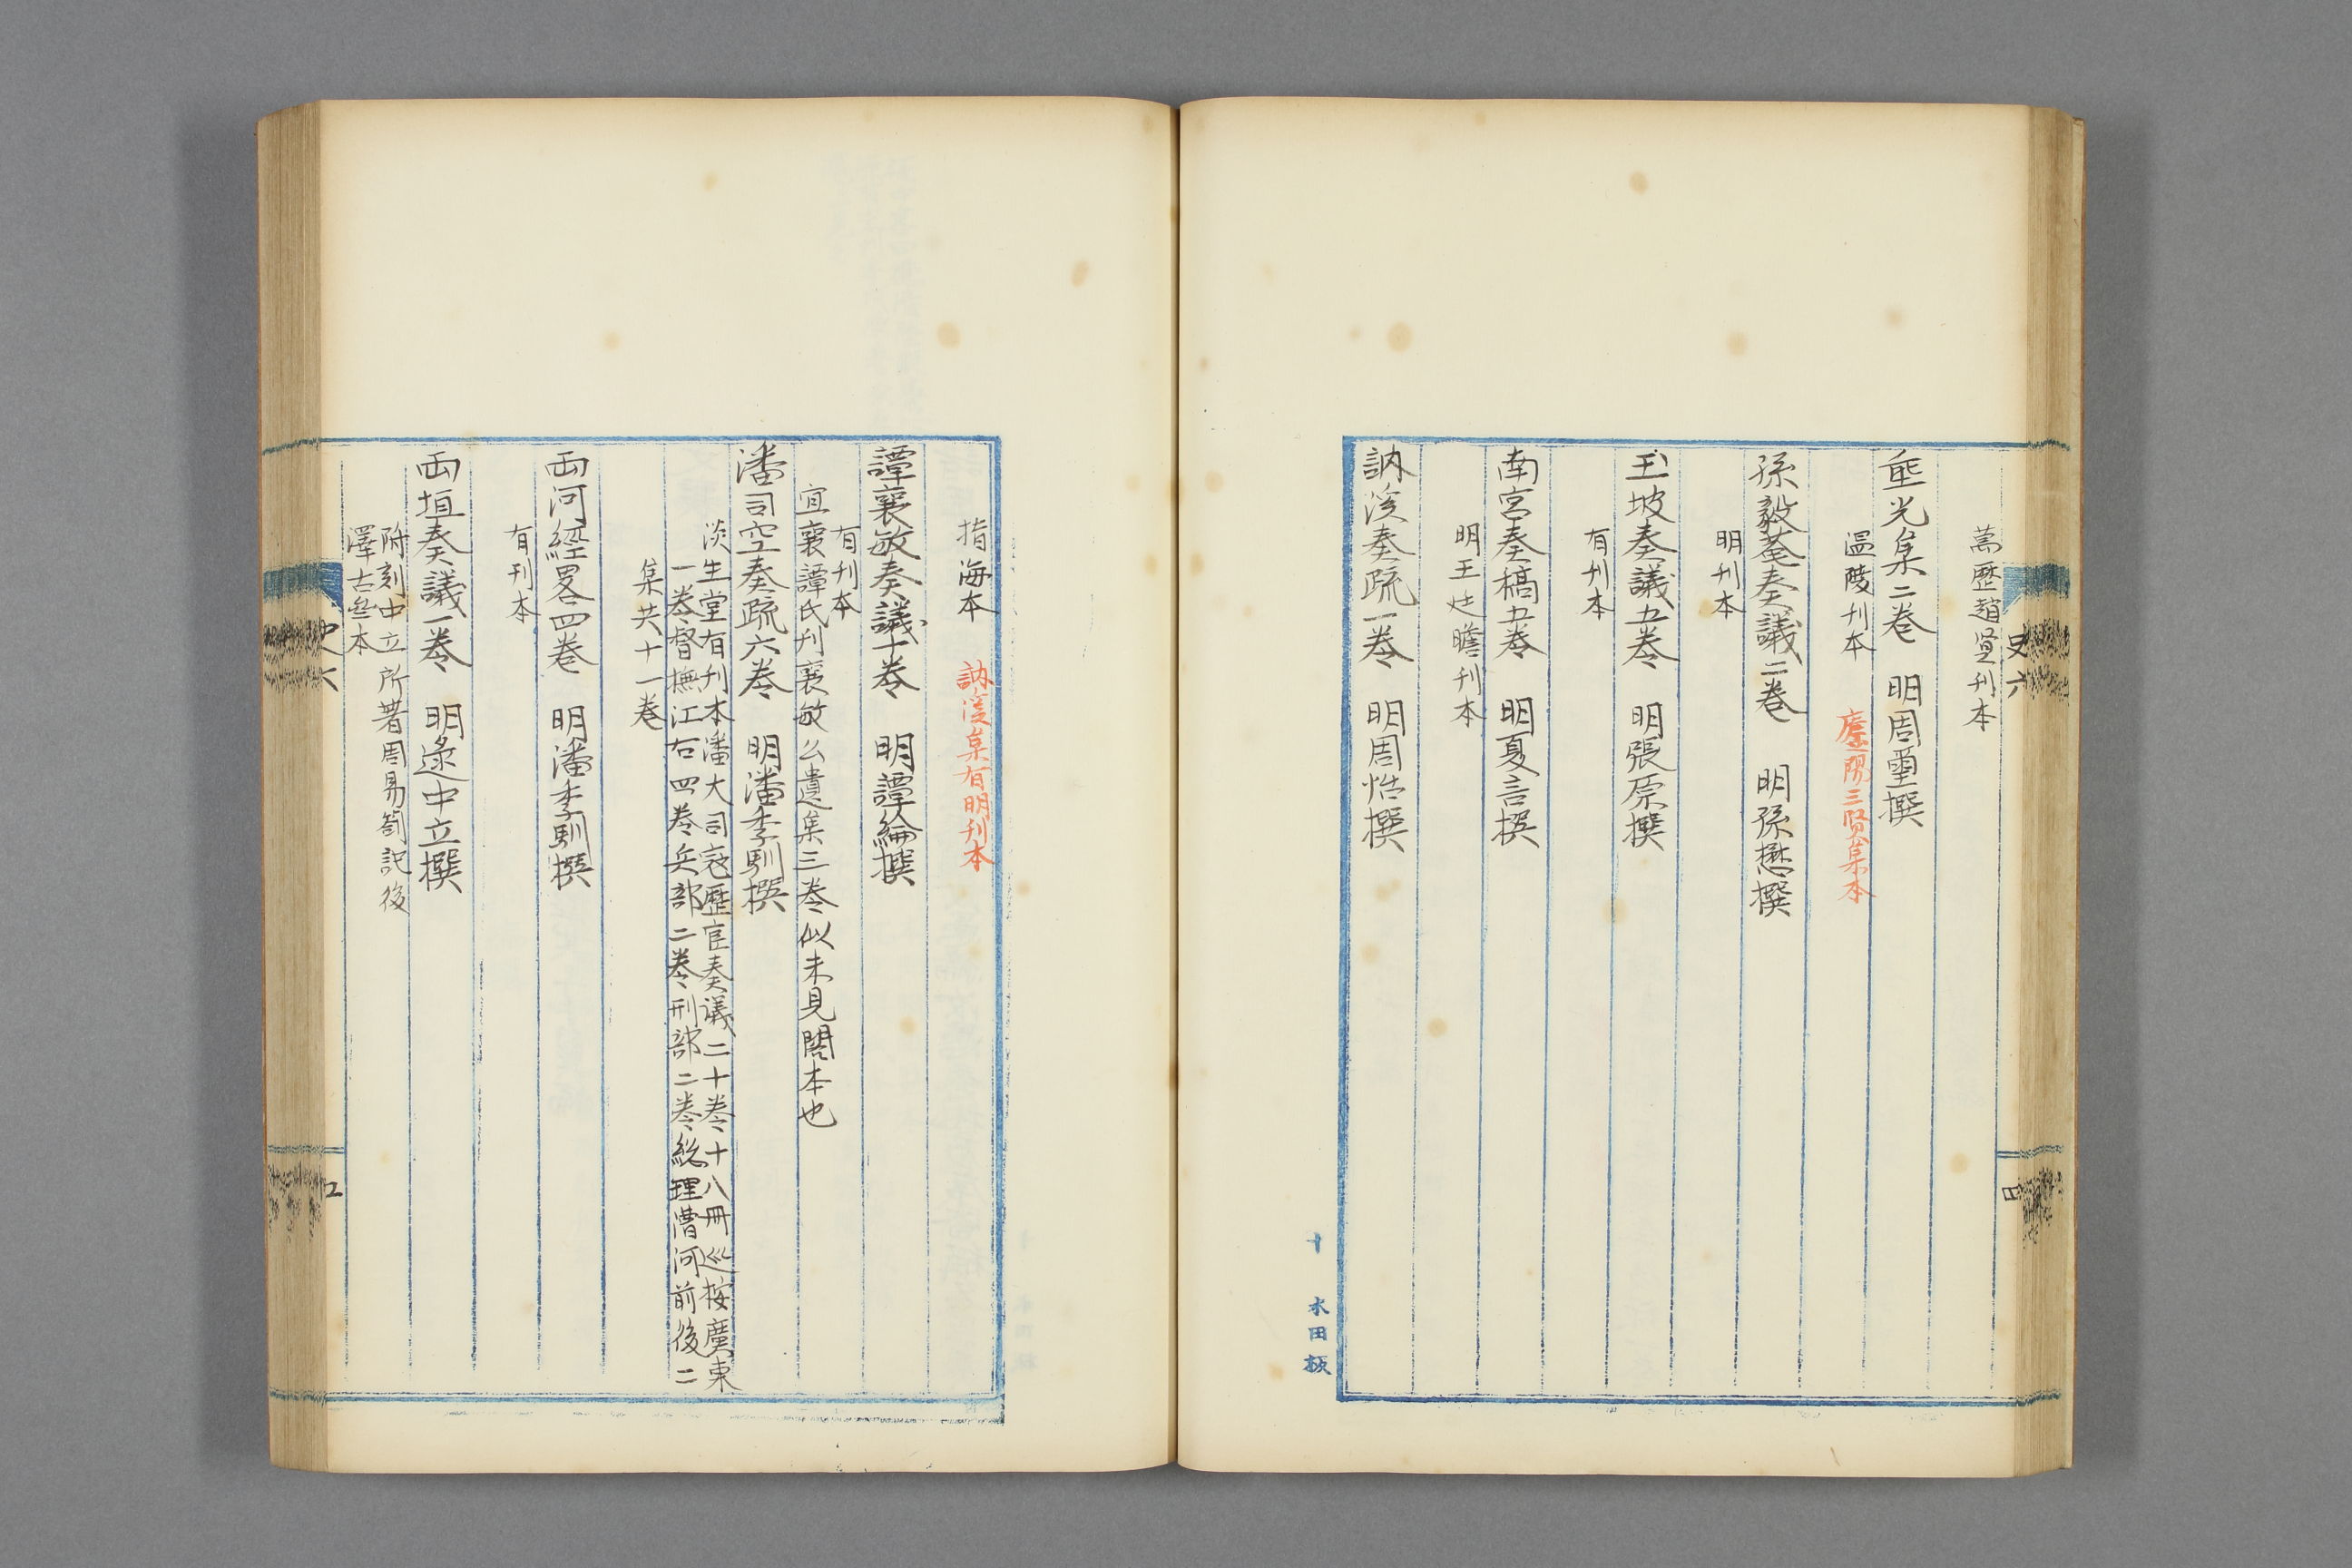 萬歷趙賢刊本
垂光集二卷　明周璽撰
溫陵刊本　廬陽三賢集本
孫毅菴奏議二卷　明孫懋撰
明刊本
玉坡奏議五卷　明張原撰
有刊本
南宮奏稿五卷　明夏言撰
明王廷瞻刊本
訥溪奏疏一卷　明周怡撰
十　木田板
史六
指海本　訥溪集有明刊本
譚襄敏奏議十卷　明譚綸撰
有刊本
宜襄譚氏刊襄敏公遺集三卷似未見閣本也
潘司空奏疏六卷　明潘季馴撰
淡生堂有刊本潘大司寇歷官奏议二十卷十八冊巡按廣東
一卷督撫江右四卷兵部二卷刑部二卷総理漕河前後二
集共十一卷
兩河經畧四卷　明潘季馴撰
有刊本
兩垣奏議一卷　明逯中立撰
附刻中立所著周易劄記後
澤古叢本
史六